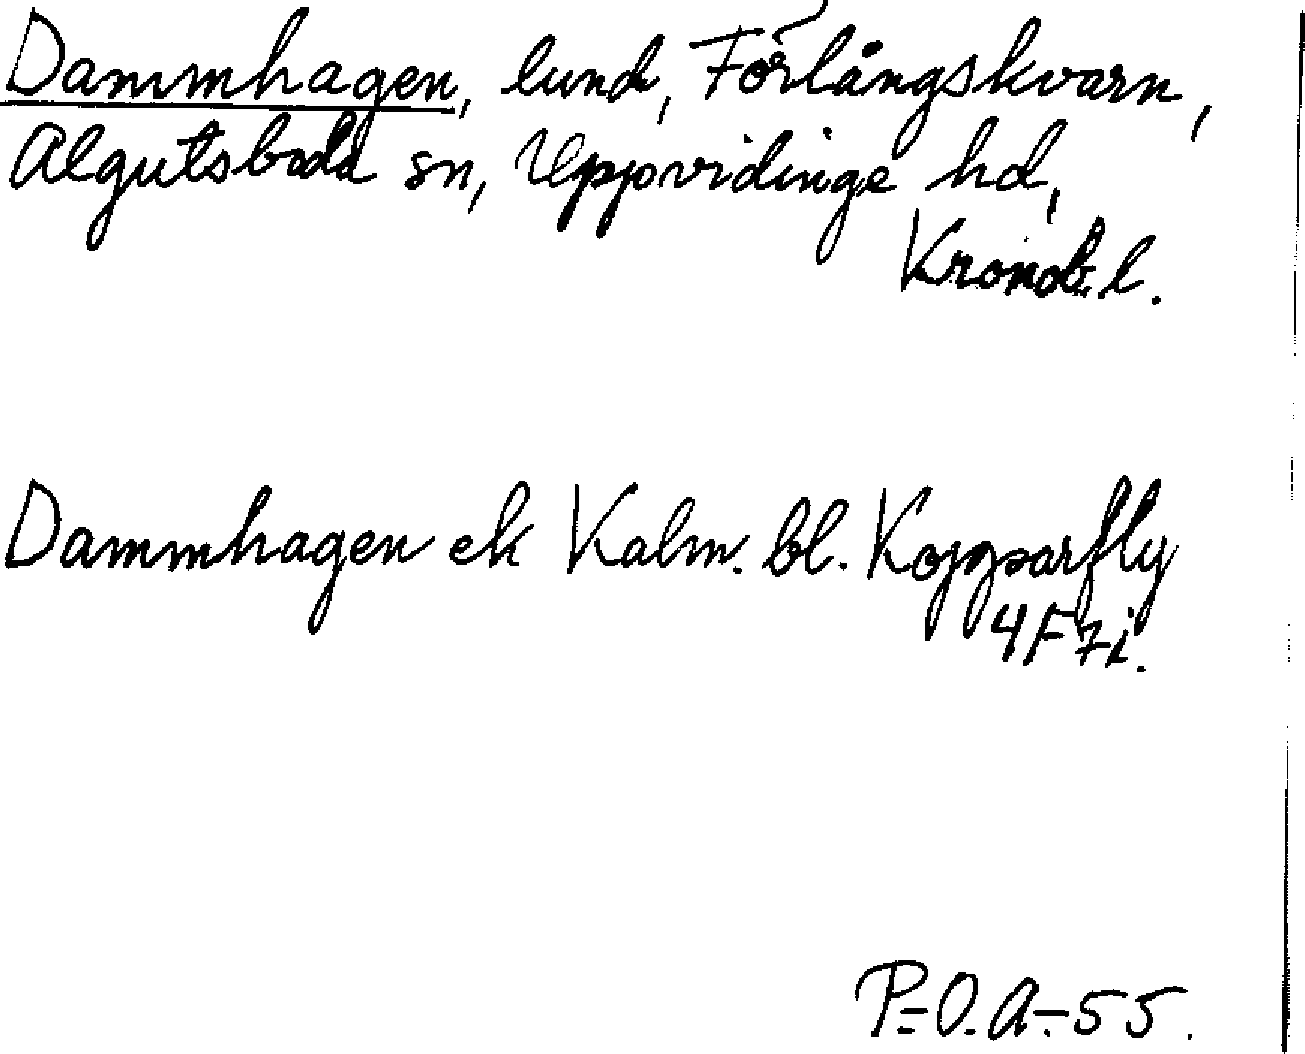 Dammhagen, lund, Förlångskvarn,
Algutsboda sn, Uppvidinge hd,
Kronob. l.
Dammhagen ek Kalm. bl. Kopparfly
4F7i.
P-O.A-55.